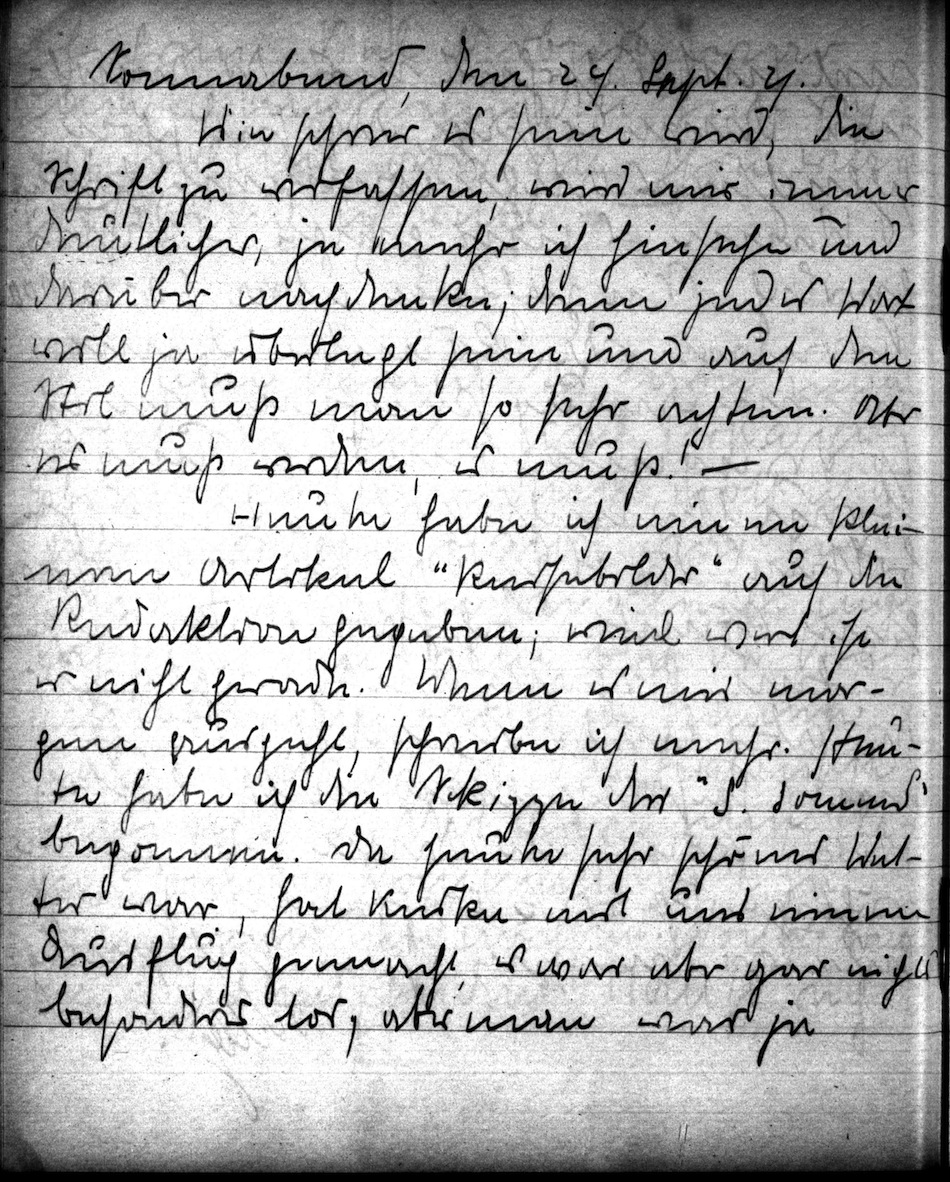 Sonnabend, den 24. Sept. 21.
Wie schwer es sein wird, die
Schrift zu verfassen, wird mir immer
deutlicher, je mehr ich hinsehe und
darüber nachdenke; denn jedes Wort
will ja überlegt sein und auf den
Stil muß man so sehr achten. Aber
es muß werden, es muß! —
Heute habe ich einen klei-
nen Artikel "Reisebilder" auf die
Redaktion gegeben; viel wert ist
er nicht gerade. Wenn es mir mor-
gen ausgeht, schreibe ich mehr. Heu-
te habe ich die Skizze der "S.
begonnen. Da heute sehr schönes Wet-
ter war, hat mit uns einen
Ausflug gemacht, es war aber gar nichts
besonderes los, aber man war ja